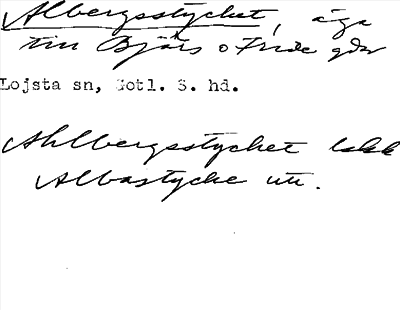 Albergsstycket, äga
till Bjärs o Fride gdr
Lojsta sn, Gotl. S. hd.
Ahlbergsstycket
Albastycke utt.